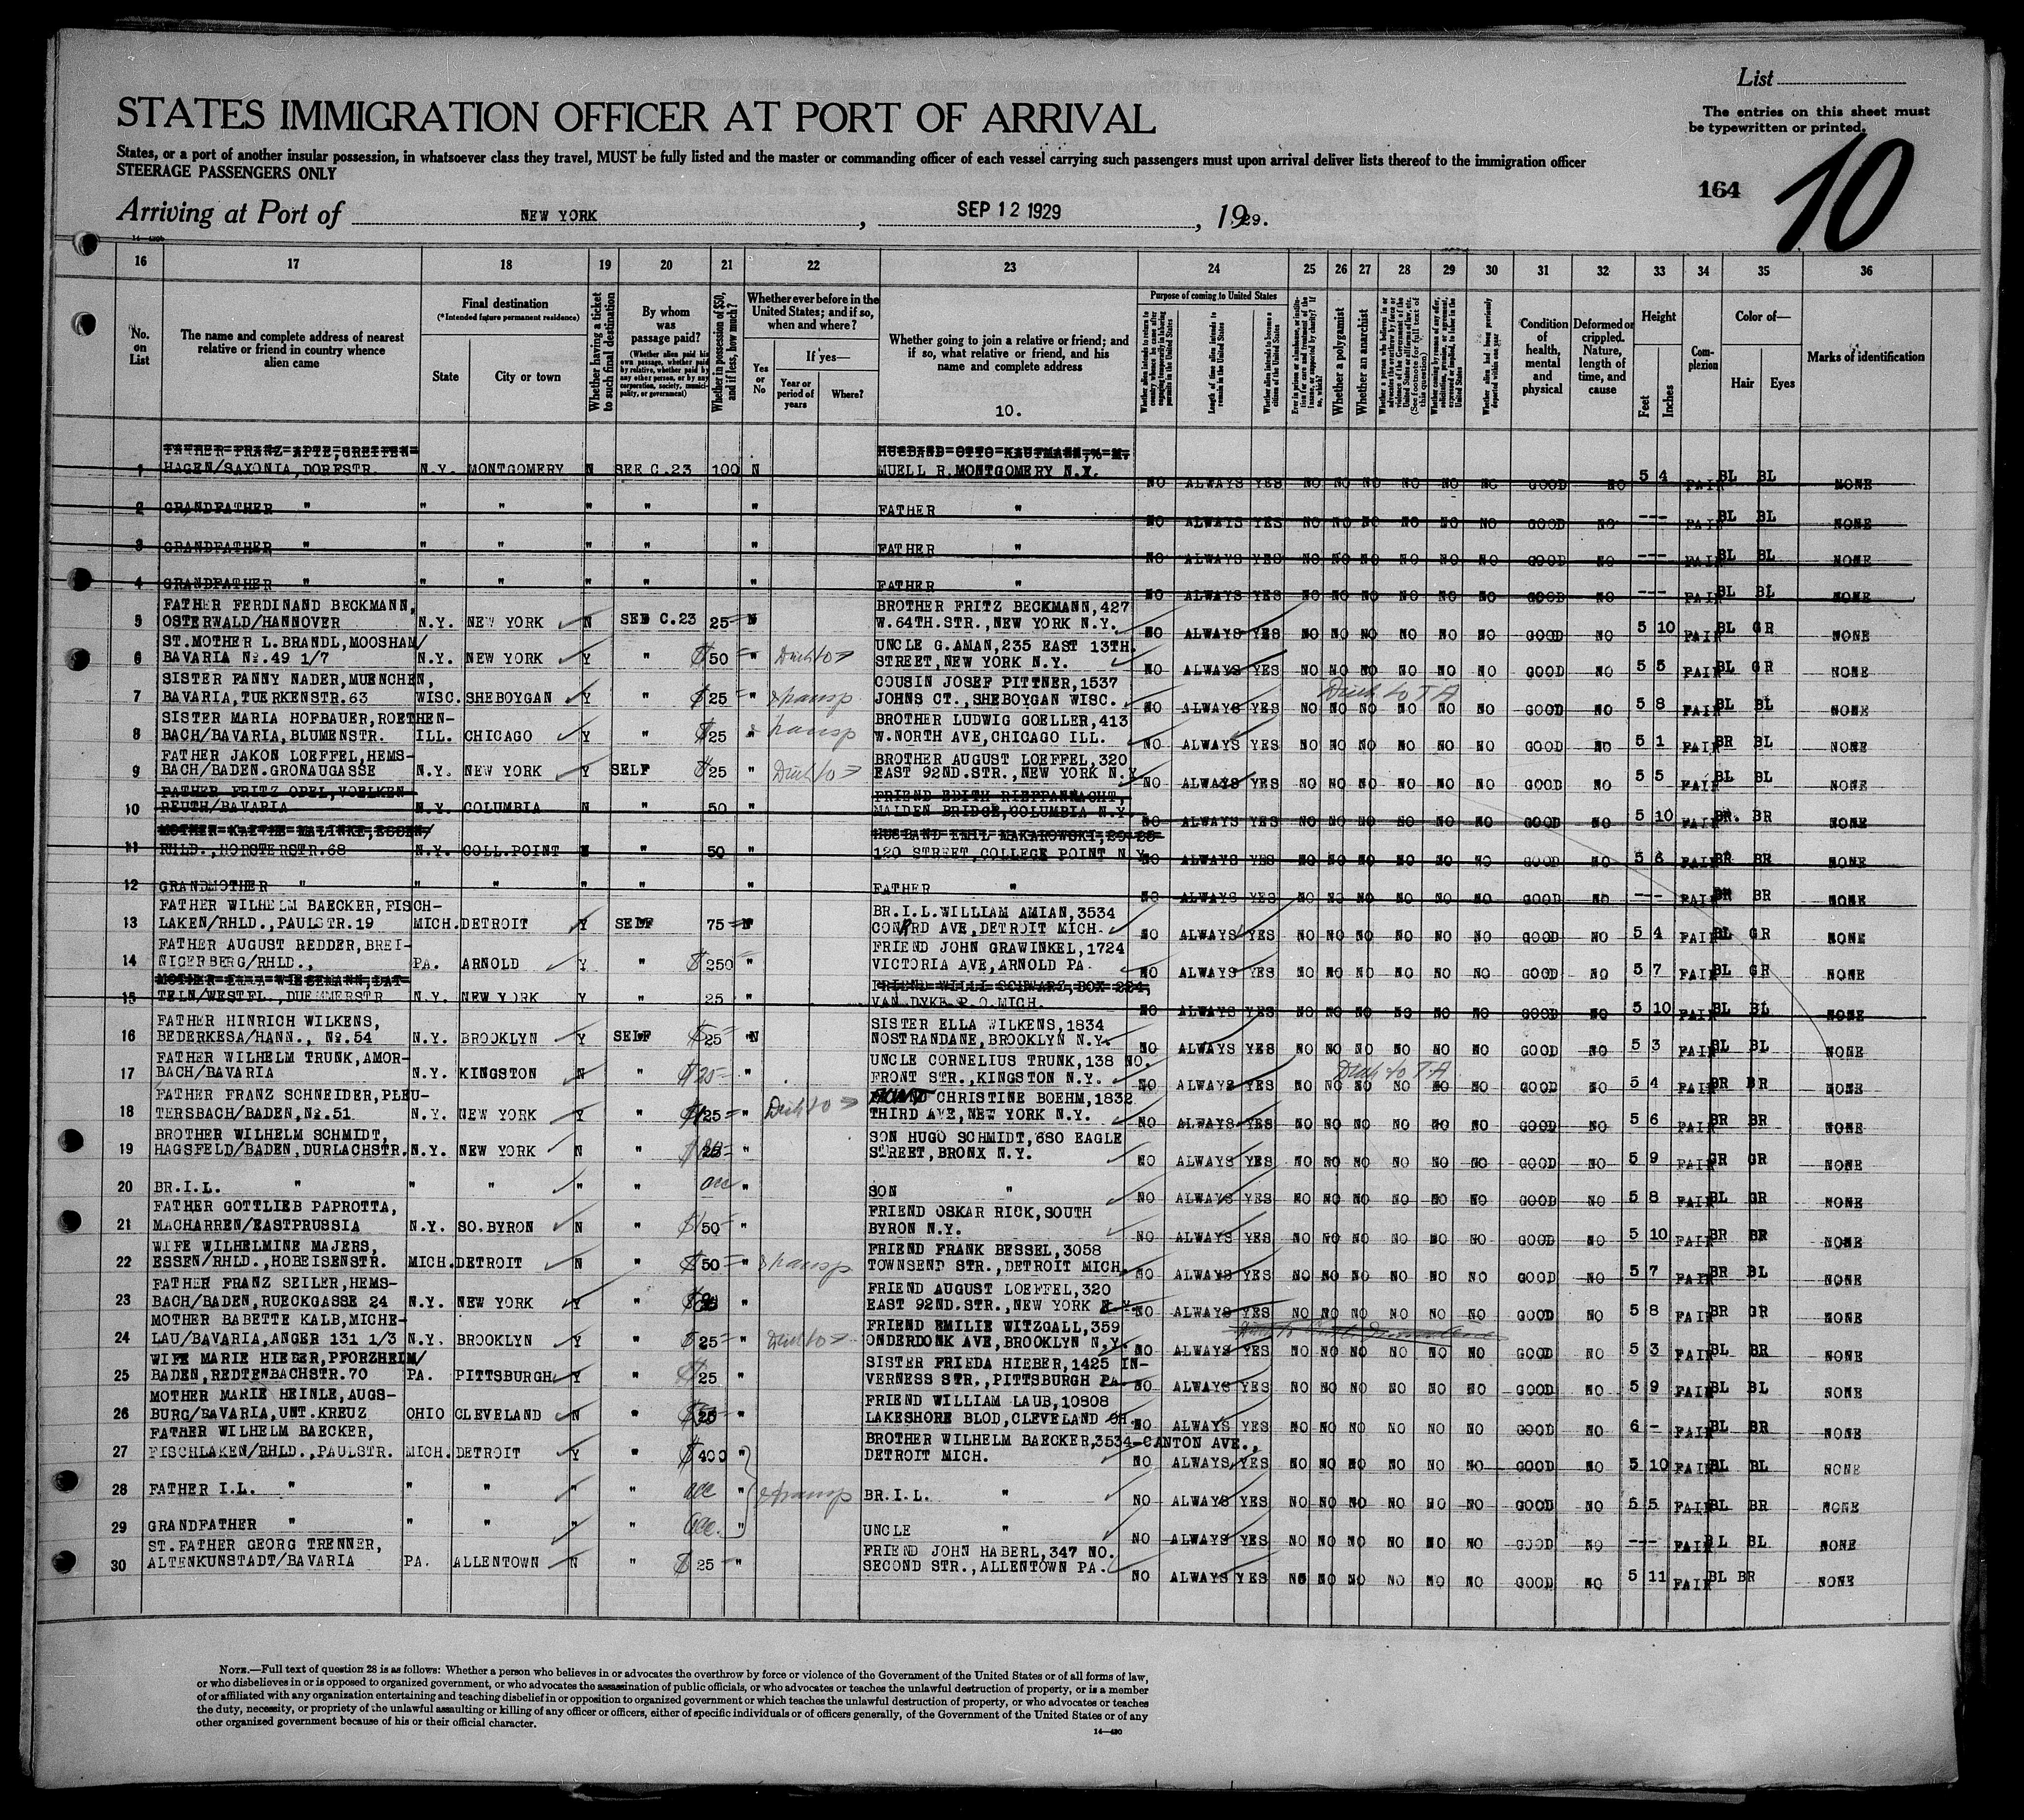 List
STATES IMMIGRATION OFFICER AT PORT OF ARRIVAL
The entries on this sheet must
be typewritten or printed.
States, or a port of another insular possession, in whatsoever class they travel, MUST be fully listed and the master or commanding officer of each vessel carrying such passengers must upon arrival deliver lists thereof to the immigration officer
STEERAGE PASSENGERS ONLY
164 10
Arriving at Port of NEW YORK, SEP 12 1929, 1929.
16 17 18 19 20 21 22 23 24 25 26 27 28 29 30 31 32 33 34 35 36
No. on List
The name and complete address of nearest relative or friend in country whence alien came
Final destination
(*Intended future permanent residence)
State
City or town
Whether having a ticket to such final destination
By whom was passage paid?
(Whether alien paid his own passage, whether paid by relative, whether paid by any other person, or by any corporation, society, municipality, or government)
Whether in possession of $50, and if less, how much?
Whether ever before in the United States; and if so, when and where?
Yes or No
If yes—
Year or period of years
Where?
Whether going to join a relative or friend; and if so, what relative or friend, and his name and complete address
10.
Purpose of coming to United States
Length of time alien intends to remain in the United States
Whether alien intends to become a citizen of the United States
Whether a polygamist
Whether an anarchist
Condition of health, mental and physical
Deformed or crippled. Nature, length of time, and cause
Height
Feet
Inches
Complexion
Color of—
Hair
Eyes
Marks of identification
FATHER FRANZ APTE, GREITEN-
1 HAGEN/SAXONIA, DORFSTR. N.Y. MONTGOMERY N SEE C.23 100 N
HUSBAND OTTO KAUFMANN, % M.
MUELL R. MONTGOMERY N.Y. NO ALWAYS YES NO NO NO NO NO NO GOOD NO 5 4 FAIR BL BL NONE
2 GRANDFATHER " " " " " " FATHER " NO ALWAYS YES NO NO NO NO NO NO GOOD NO --- FAIR BL BL NONE
3 GRANDFATHER " " " " " " FATHER " NO ALWAYS YES NO NO NO NO NO NO GOOD NO --- FAIR BL BL NONE
4 GRANDFATHER " " " " " " FATHER " NO ALWAYS YES NO NO NO NO NO NO GOOD NO --- FAIR BL BL NONE
FATHER FERDINAND BECKMANN, BROTHER FRITZ BECKMANN, 427
5 OSTERWALD/HANNOVER N.Y. NEW YORK N SEE C.23 25 N W.64TH.STR., NEW YORK N.Y. NO ALWAYS YES NO NO NO NO NO NO GOOD NO 5 10 FAIR BL GR NONE
ST.MOTHER L.BRANDL, MOOSHAM/ UNCLE G.AMAN, 235 EAST 13TH.
6 BAVARIA No.49 1/7 N.Y. NEW YORK Y " $50 " STREET, NEW YORK N.Y. NO ALWAYS YES NO NO NO NO NO NO GOOD NO 5 5 FAIR BL GR NONE
SISTER FANNY NADER, MUENCHEN, COUSIN JOSEF PITTNER, 1537
7 BAVARIA, TUERKENSTR.63 WISC. SHEBOYGAN Y " $25 " transp JOHNS CT., SHEBOYGAN WISC. NO ALWAYS YES NO NO NO NO NO NO GOOD NO 5 8 FAIR BL BL NONE
SISTER MARIA HOFBAUER, ROETHEN- BROTHER LUDWIG GOELLER, 413
8 BACH/BAVARIA, BLUMENSTR. ILL. CHICAGO Y " $25 " transp W.NORTH AVE, CHICAGO ILL. NO ALWAYS YES NO NO NO NO NO NO GOOD NO 5 1 FAIR BR BL NONE
FATHER JAKON LOEFFEL, HEMS- BROTHER AUGUST LOEFFEL, 320
9 BACH/BADEN.GRONAUGASSE N.Y. NEW YORK Y SELF $25 " EAST 92ND.STR., NEW YORK N.Y NO ALWAYS YES NO NO NO NO NO NO GOOD NO 5 5 FAIR BL BL NONE
FATHER FRITZ OPEL, VOELKEN- FRIEND EDITH
10 REUTH/BAVARIA N.Y. COLUMBIA N " 50 " MALDEN BRIDGE, COLUMBIA N.Y. NO ALWAYS YES NO NO NO NO NO NO GOOD NO 5 10 FAIR BR. BR NONE
MOTHER KAETHE MALINKE, ESSEN/ HUSBAND EMIL MAKAROWSKI, 29-28
11 RHLD., HORSTERSTR.68 N.Y. COLL.POINT N " 50 " 120 STREET, COLLEGE POINT N.Y NO ALWAYS YES NO NO NO NO NO NO GOOD NO 5 6 FAIR BR BR NONE
12 GRANDMOTHER " " " " " " FATHER " NO ALWAYS YES NO NO NO NO NO NO GOOD NO --- FAIR BR BR NONE
FATHER WILHELM BAECKER, FISCH- BR.I.L.WILLIAM AMIAN, 3534
13 LAKEN/RHLD., PAULSTR.19 MICH. DETROIT Y SELF 75 N CONRD AVE, DETROIT MICH. NO ALWAYS YES NO NO NO NO NO NO GOOD NO 5 4 FAIR BL GR NONE
FATHER AUGUST REDDER, BREI- FRIEND JOHN GRAWINKEL, 1724
14 NIGERBERG/RHLD., PA. ARNOLD Y " $250 " VICTORIA AVE, ARNOLD PA. NO ALWAYS YES NO NO NO NO NO NO GOOD NO 5 7 FAIR BL GR NONE
MOTHER ERNA WIESEMANN, DAT- FRIEND WILLI SCHWARZ, BOX 224,
15 TELN/WESTFL., DUEMMERSTR N.Y. NEW YORK Y " 25 " VAN DYKE P.O.MICH. NO ALWAYS YES NO NO NO NO NO NO GOOD NO 5 10 FAIR BL BL NONE
FATHER HINRICH WILKENS, SISTER ELLA WILKENS, 1834
16 BEDERKESA/HANN., No.54 N.Y. BROOKLYN Y SELF $25 "N NOSTRANDANE, BROOKLYN N.Y. NO ALWAYS YES NO NO NO NO NO NO GOOD NO 5 3 FAIR BL BL NONE
FATHER WILHELM TRUNK, AMOR- UNCLE CORNELIUS TRUNK, 138 NO.
17 BACH/BAVARIA N.Y. KINGSTON N " $25 " FRONT STR., KINGSTON N.Y. NO ALWAYS YES NO NO NO NO NO NO GOOD NO 5 4 FAIR BR BR NONE
FATHER FRANZ SCHNEIDER, PLEU- CHRISTINE BOEHM, 1832
18 TERSBACH/BADEN, No.51 N.Y. NEW YORK Y " $25 " THIRD AVE, NEW YORK N.Y. NO ALWAYS YES NO NO NO NO NO NO GOOD NO 5 6 FAIR BR BR NONE
BROTHER WILHELM SCHMIDT, SON HUGO SCHMIDT, 680 EAGLE
19 HAGSFELD/BADEN, DURLACHSTR. N.Y. NEW YORK N " " STREET, BRONX N.Y. NO ALWAYS YES NO NO NO NO NO NO GOOD NO 5 9 FAIR GR GR NONE
20 BR.I.L. " " " " " " SON " NO ALWAYS YES NO NO NO NO NO NO GOOD NO 5 8 FAIR BL GR NONE
FATHER GOTTLIEB PAPROTTA, FRIEND OSKAR RICK, SOUTH
21 MACHARREN/EASTPRUSSIA N.Y. SO.BYRON N " $50 " BYRON N.Y. NO ALWAYS YES NO NO NO NO NO NO GOOD NO 5 10 FAIR BR BR NONE
WIFE WILHELMINE MAJERS, FRIEND FRANK BESSEL, 3058
22 ESSEN/RHLD., HOBEISENSTR. MICH. DETROIT N " $50 " transp TOWNSEND STR., DETROIT MICH. NO ALWAYS YES NO NO NO NO NO NO GOOD NO 5 7 FAIR BR BL NONE
FATHER FRANZ SEILER, HEMS- FRIEND AUGUST LOEFFEL, 320
23 BACH/BADEN, RUECKGASSE 24 N.Y. NEW YORK Y " " EAST 92ND.STR., NEW YORK N.Y. NO ALWAYS YES NO NO NO NO NO NO GOOD NO 5 8 FAIR BR GR NONE
MOTHER BABETTE KALB, MICHE- FRIEND EMILIE WITZGALL, 359
24 LAU/BAVARIA, ANGER 131 1/3 N.Y. BROOKLYN Y " $25 " ONDERDONK AVE, BROOKLYN N.Y. NO ALWAYS YES NO NO NO NO NO NO GOOD NO 5 3 FAIR BL BR NONE
WIFE MARIE HIEBER, PFORZHEIM/ SISTER FRIEDA HIEBER, 1425 IN-
25 BADEN, REDTENBACHSTR.70 PA. PITTSBURGH Y " 25 " VERNESS STR., PITTSBURGH PA. NO ALWAYS YES NO NO NO NO NO NO GOOD NO 5 9 FAIR BL BL NONE
MOTHER MARIE HEINLE, AUGS- FRIEND WILLIAM LAUB, 10808
26 BURG/BAVARIA, UNT.KREUZ OHIO CLEVELAND N " " LAKESHORE BLOD, CLEVELAND OH. NO ALWAYS YES NO NO NO NO NO NO GOOD NO 6 - FAIR BL BR NONE
FATHER WILHELM BAECKER, BROTHER WILHELM BAECKER, 3534-CANTON AVE.,
27 FISCHLAKEN/RHLD., PAULSTR. MICH. DETROIT Y " $400 " DETROIT MICH. NO ALWAYS YES NO NO NO NO NO NO GOOD NO 5 10 FAIR BL BL NONE
28 FATHER I.L. " " " " " transp BR.I.L. " NO ALWAYS YES NO NO NO NO NO NO GOOD NO 5 5 FAIR BL BR NONE
29 GRANDFATHER " " " " " UNCLE " NO ALWAYS YES NO NO NO NO NO NO GOOD NO --- FAIR BL BL NONE
ST.FATHER GEORG TRENNER, FRIEND JOHN HABERL, 347 NO.
30 ALTENKUNSTADT/BAVARIA PA. ALLENTOWN N " $25 " SECOND STR., ALLENTOWN PA. NO ALWAYS YES NO NO NO NO NO NO GOOD NO 5 11 FAIR BL BR NONE
NOTE.—Full text of question 28 is as follows: Whether a person who believes in or advocates the overthrow by force or violence of the Government of the United States or of all forms of law,
or who disbelieves in or is opposed to organized government, or who advocates the assassination of public officials, or who advocates or teaches the unlawful destruction of property, or is a member
of or affiliated with any organization entertaining and teaching disbelief in or opposition to organized government or which teaches the unlawful destruction of property, or who advocates or teaches
the duty, necessity, or propriety of the unlawful assaulting or killing of any officer or officers, either of specific individuals or of officers generally, of the Government of the United States or of any
other organized government because of his or their official character.
14—430